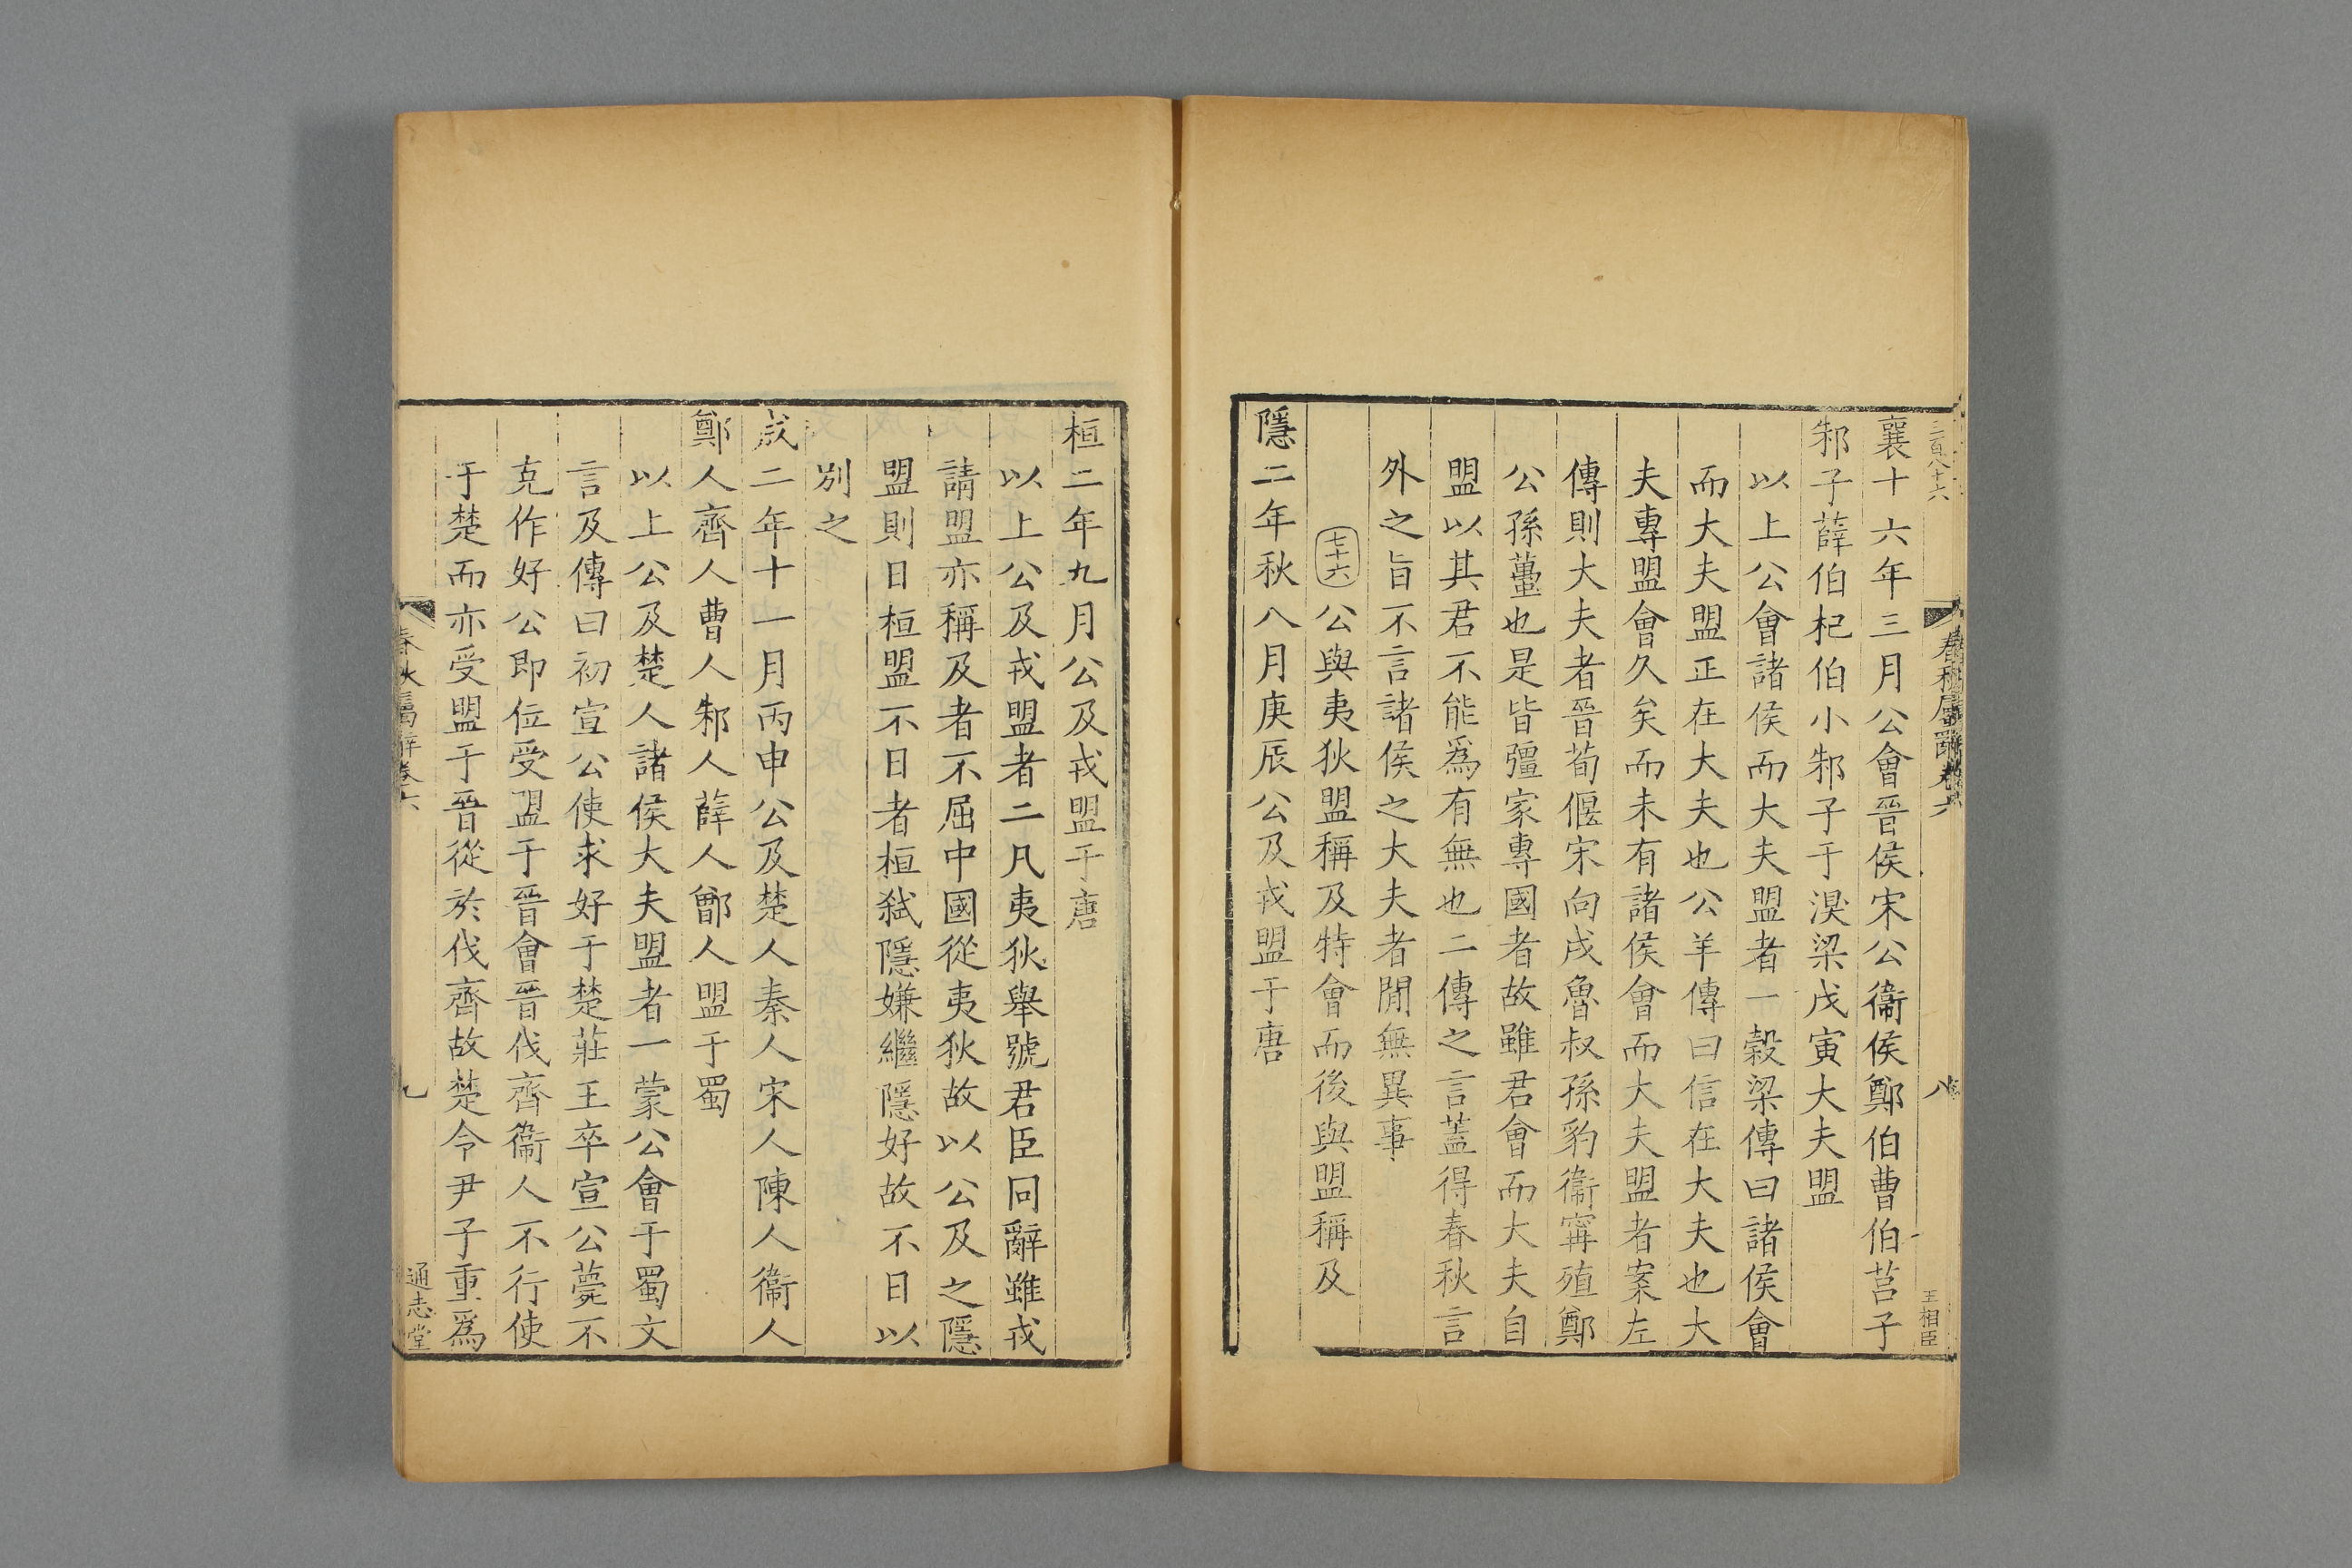 三百八十六
春秋屬辭卷六
八
王相臣
襄十六年三月公會晉侯宋公衞侯鄭伯曹伯莒子
邾子薛伯杞伯小邾子于湨梁戊寅大夫盟
以上公會諸侯而大夫盟者一穀梁傳曰諸侯會
而大夫盟正在大夫也公羊傳曰信在大夫也大
夫專盟會久矣而未有諸侯會而大夫盟者案左
傳則大夫者晉荀偃宋向戌魯叔孫豹衞甯殖鄭
公孫蠆也是皆彊家專國者故雖君會而大夫自
盟以其君不能爲有無也二傳之言蓋得春秋言
外之旨不言諸侯之大夫者閒無異事
七十六公與夷狄盟稱及特會而後與盟稱及
隱二年秋八月庚辰公及戎盟于唐
桓二年九月公及戎盟于唐
以上公及戎盟者二凡夷狄舉號君臣同辭雖戎
請盟亦稱及者不屈中國從夷狄故以公及之隱
盟則日桓盟不日者桓弑隱嫌繼隱好故不日以
別之
成二年十一月丙申公及楚人秦人宋人陳人衞人
鄭人齊人曹人邾人薛人鄫人盟于蜀
以上公及楚人諸侯大夫盟者一蒙公會于蜀文
言及傳曰初宣公使求好于楚莊王卒宣公薨不
克作好公即位受盟于晉會晉伐齊衞人不行使
于楚而亦受盟于晉從於伐齊故楚令尹子重爲
春秋屬辭卷六
九
通志堂